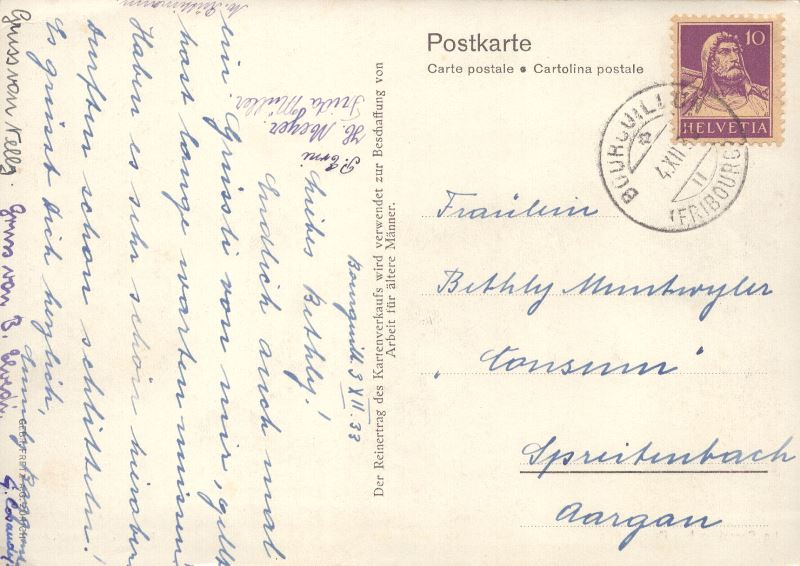 Postkarte
Carte postale • Cartolina postale
10
HELVETIA
BOURGUILLON
4.XII
(FRIBOURG)
Fräulein
Bethly Muntwyler
"Consum"
Spreitenbach
Aargau
Der Reinertrag des Kartenverkaufs wird verwendet zur Beschaffung von
Arbeit für ältere Männer.
Bourguill. 3 XII. 33
Liebes Bethly!
Endlich auch mal
ein Grüssli von mir, gell
hast lange warten müssen!
Haben es sehr schön hieroben
durften schon schlitteln!
Es grüsst Dich herzlich,
Gruss von Nelly.
Gruss von B.
H. Meyer.
Frida Müller.